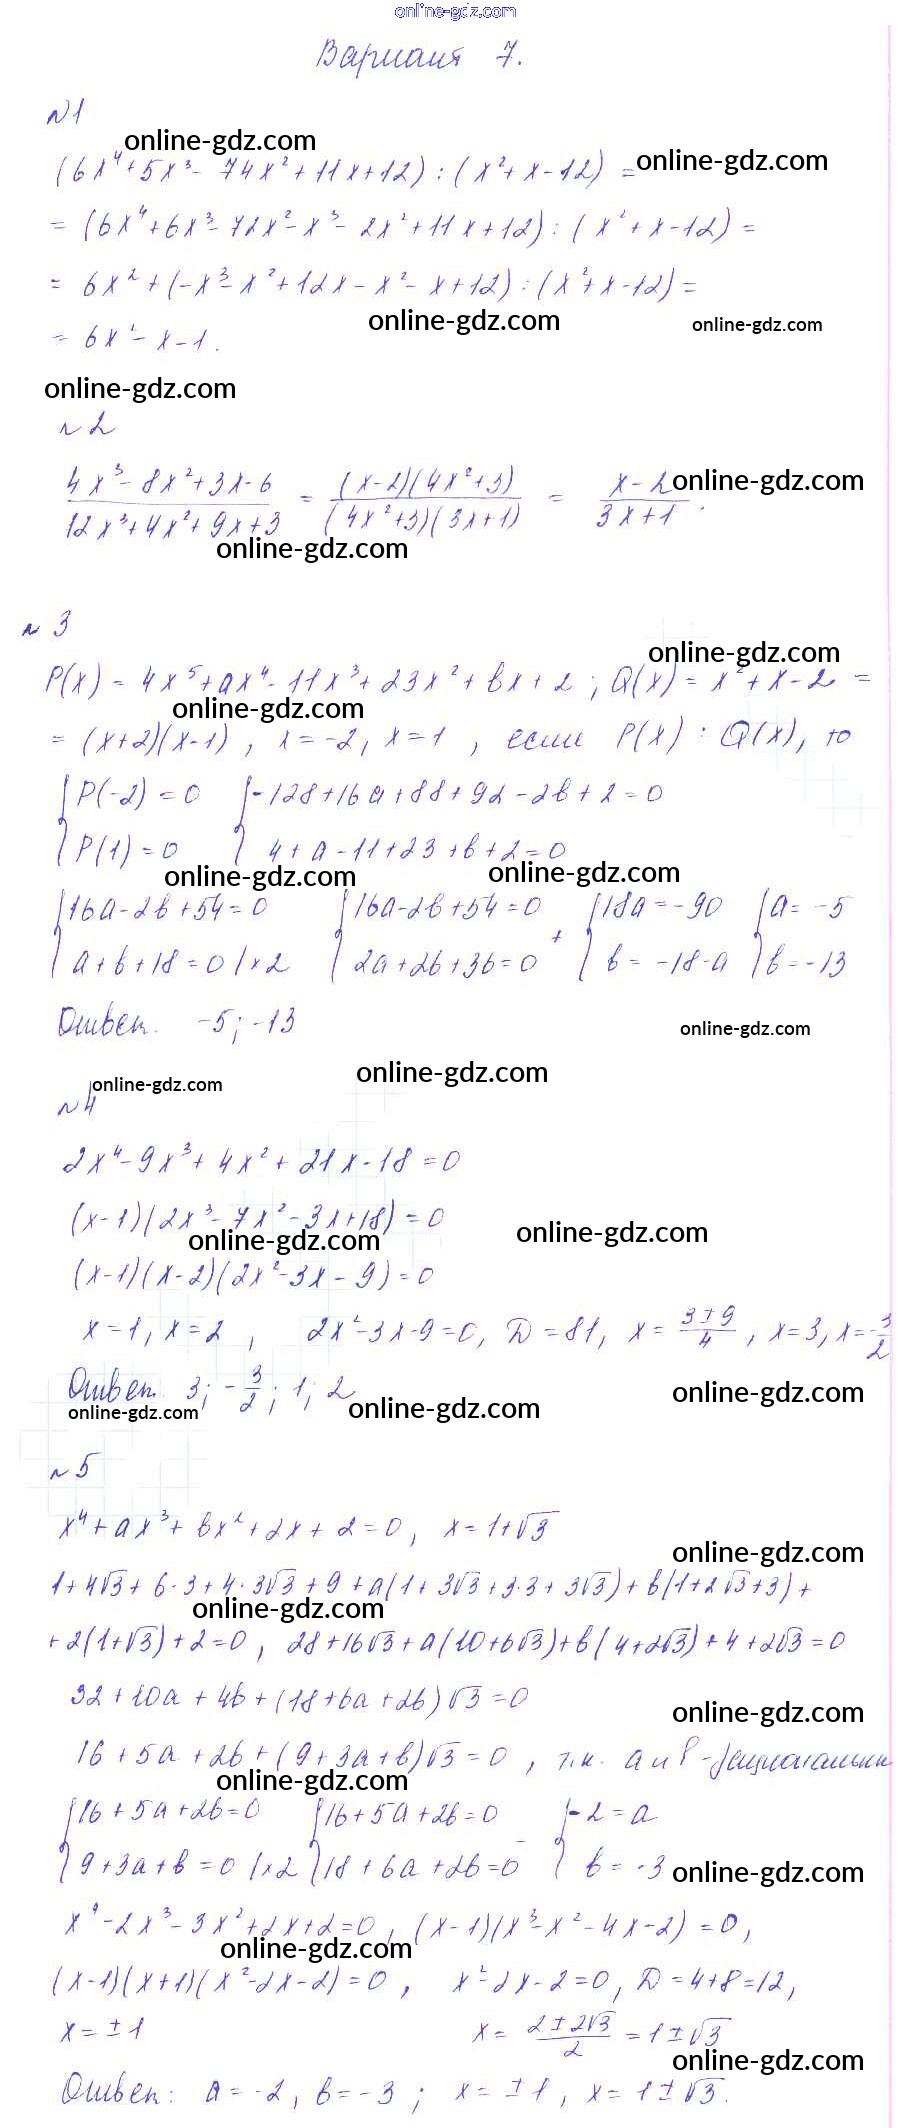 online-gdz.com
Вариант 7.
№1
online-gdz.com
online-gdz.com
(6x⁴+5x³-74x²+11x+12):(x²+x-12) =
= (6x⁴+6x³-72x²-x³-2x²+11x+12):(x²+x-12) =
= 6x²+(-x³-x²+12x-x²-x+12):(x²+x-12) =
online-gdz.com
online-gdz.com
= 6x²-x-1.
online-gdz.com
№2
(4x³-8x²+3x-6)/(12x³+4x²+9x+3) = ((x-2)(4x²+3))/((4x²+3)(3x+1)) = (x-2)/(3x+1).
online-gdz.com
online-gdz.com
№3
online-gdz.com
P(x) = 4x⁵+ax⁴-11x³+23x²+bx+2; Q(x) = x²+x-2 =
online-gdz.com
= (x+2)(x-1), x=-2, x=1, если P(x) ⋮ Q(x), то
{P(-2)=0 {-128+16a+88+92-2b+2=0
{P(1)=0 { 4+a-11+23+b+2=0
online-gdz.com
online-gdz.com
{16a-2b+54=0 {16a-2b+54=0 {18a=-90 {a=-5
{a+b+18=0 |×2 {2a+2b+36=0 + {b=-18-a {b=-13
Ответ. -5; -13
online-gdz.com
online-gdz.com
online-gdz.com
№4
2x⁴-9x³+4x²+21x-18=0
(x-1)(2x³-7x²-3x+18)=0
online-gdz.com
online-gdz.com
(x-1)(x-2)(2x²-3x-9)=0
x=1, x=2, 2x²-3x-9=0, D=81, x= (3±9)/4, x=3, x=-3/2
Ответ. 3; -3/2; 1; 2
online-gdz.com
online-gdz.com
online-gdz.com
№5
x⁴+ax³+bx²+2x+2=0, x=1+√3
online-gdz.com
1+4√3+6·3+4·3√3+9+a(1+3√3+3·3+3√3)+b(1+2√3+3)+
online-gdz.com
+2(1+√3)+2=0, 28+16√3+a(10+6√3)+b(4+2√3)+4+2√3=0
32+10a+4b+(18+6a+2b)√3=0
online-gdz.com
16+5a+2b+(9+3a+b)√3=0, т.к. a и b -рациональны
online-gdz.com
{16+5a+2b=0 {16+5a+2b=0 {-2=a
{9+3a+b=0 |×2 {18+6a+2b=0 - {b=-3
online-gdz.com
x⁴-2x³-3x²+2x+2=0, (x-1)(x³-x²-4x-2)=0,
online-gdz.com
(x-1)(x+1)(x²-2x-2)=0, x²-2x-2=0, D=4+8=12,
x=±1 x= (2±2√3)/2 =1±√3
online-gdz.com
Ответ: a=-2, b=-3; x=±1, x=1±√3.